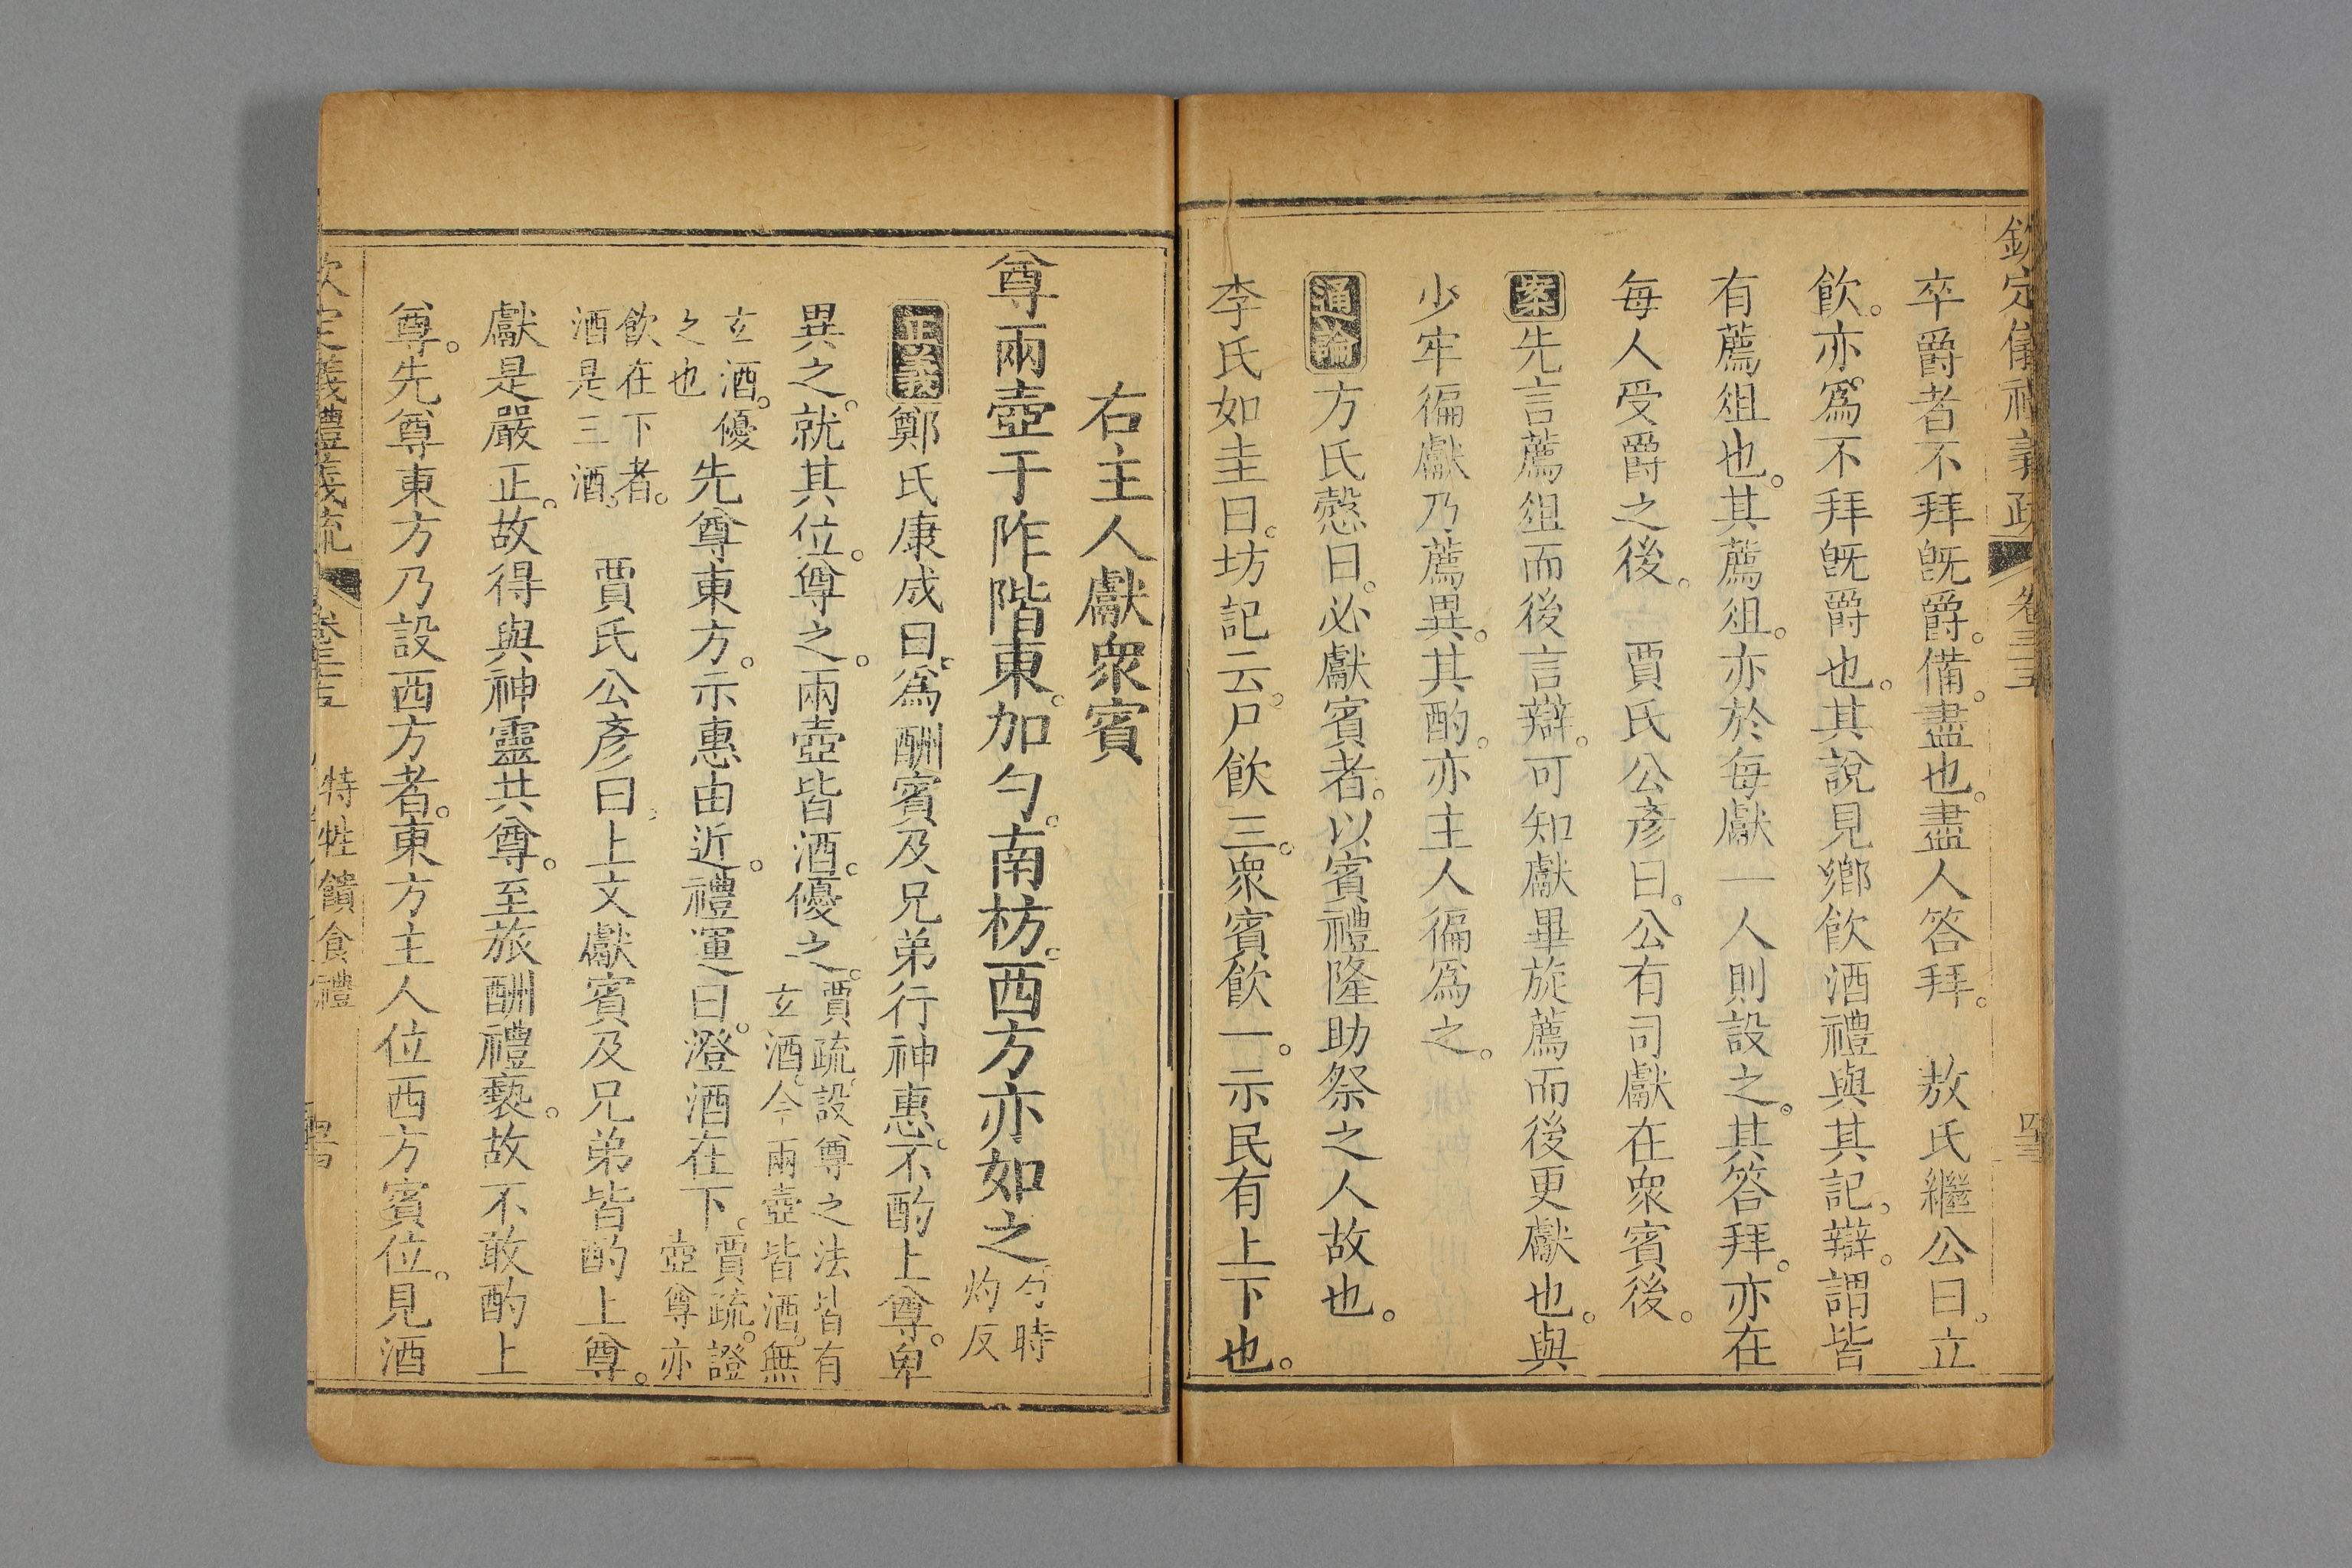 欽定儀禮義疏 卷三十五 四十三
卒爵者不拜旣爵。備。盡也。盡人答拜。 敖氏繼公曰。立
飲。亦爲不拜旣爵也。其說見鄉飲酒禮與其記。辯。謂皆
有薦俎也。其薦俎。亦於每獻一人則設之。其答拜。亦在
每人受爵之後。 賈氏公彥曰。公有司獻在衆賓後。
案先言薦俎而後言辯。可知獻畢旋薦而後更獻也。與
少牢徧獻乃薦異。其酌。亦主人徧爲之。
通論方氏慤曰。必獻賓者。以賓禮隆助祭之人故也。
李氏如圭曰。坊記云。尸飲三。衆賓飲一。示民有上下也。
右主人獻衆賓
尊兩壺于阼階東。加勺。南枋。西方亦如之勺時
灼反
正義鄭氏康成曰。爲酬賓及兄弟行神惠。不酌上尊。卑
異之。就其位。尊之。兩壺皆酒。優之。賈疏。設尊之法皆有
玄酒。今兩壺皆酒。無
玄酒。優
之也 先尊東方。示惠由近。禮運曰。澄酒在下。賈疏。證
壺尊亦
飲在下者。
酒是三酒。 賈氏公彥曰。上文獻賓及兄弟皆酌上尊。
獻是嚴正。故得與神靈共尊。至旅酬禮褻。故不敢酌上
尊。先尊東方乃設西方者。東方主人位西方賓位。見酒
欽定義禮義疏 卷三十五 特牲饋食禮 四十四